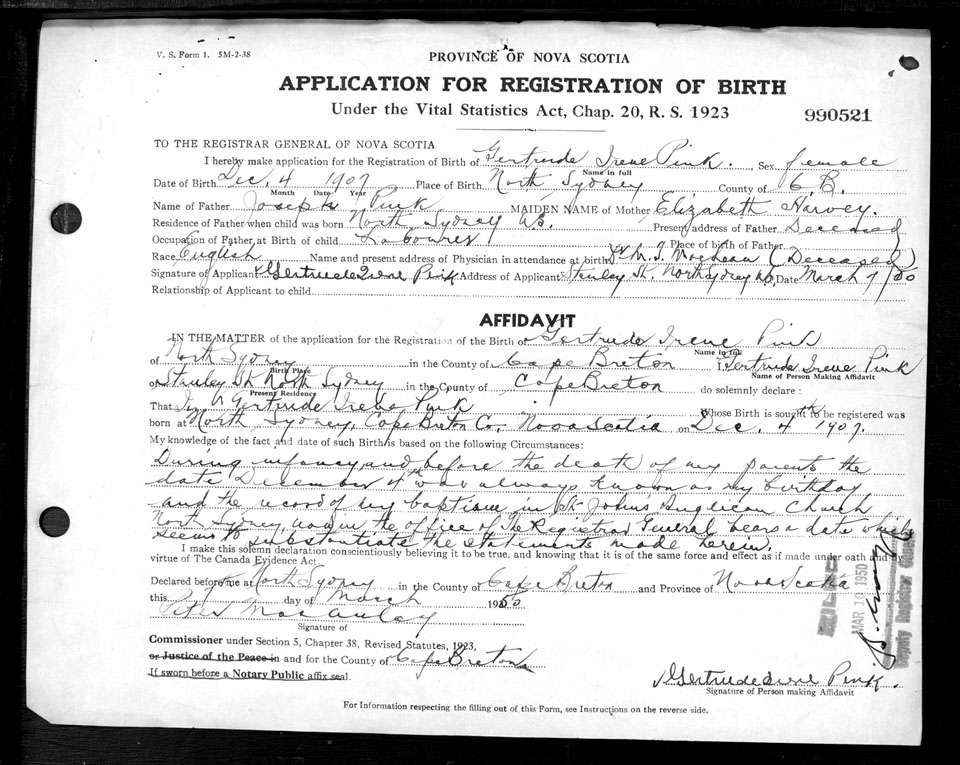 V. S. Form 1. 5M-2-38
PROVINCE OF NOVA SCOTIA
APPLICATION FOR REGISTRATION OF BIRTH
Under the Vital Statistics Act, Chap. 20, R. S. 1923
990521
TO THE REGISTRAR GENERAL OF NOVA SCOTIA
I hereby make application for the Registration of Birth of Gertrude Irene Pink. Sex female
Name in full
Date of Birth Dec. 4 1907 Place of Birth North Sydney County of C.B.
Month Date Year
Name of Father Joseph Pink MAIDEN NAME of Mother Elizabeth Harvey.
Residence of Father when child was born North Sydney NS. Present address of Father Deceased
Occupation of Father at Birth of child Labourer Place of birth of Father
Race English Name and present address of Physician in attendance at birth Dr. M. T. MacLean (Deceased)
Signature of Applicant Gertrude Irene Pink Address of Applicant Stanley St. North Sydney NS, Date March 7/50
Relationship of Applicant to child
AFFIDAVIT
IN THE MATTER of the application for the Registration of the Birth of Gertrude Irene Pink
Name in full
of North Sydney in the County of Cape Breton I, Gertrude Irene Pink
Birth Place
Name of Person Making Affidavit
of Stanley St North Sydney in the County of Cape Breton do solemnly declare:
Present Residence
That I, Gertrude Irene Pink Whose Birth is sought to be registered was
born at North Sydney, Cape Breton Co., Nova Scotia on Dec. 4th 1907.
My knowledge of the fact and date of such Birth is based on the following Circumstances:
During infancy and before the death of my parents the
date December 4th was always known as my birthday
and the record of my baptism in St. John's Anglican Church
North Sydney, now in the office of The Registrar General bears a date which
seems to substantiate the statements made herein.
I make this solemn declaration conscientiously believing it to be true, and knowing that it is of the same force and effect as if made under oath and by
virtue of The Canada Evidence Act.
Declared before me at North Sydney in the County of Cape Breton and Province of Nova Scotia
this 7 day of March 1950
Peter MacAulay
Signature of
Commissioner under Section 5, Chapter 38, Revised Statutes, 1923,
or Justice of the Peace in and for the County of Cape Breton
If sworn before a Notary Public affix seal
FILED
MAR 10 1950
Deputy Registrar General
Gertrude Irene Pink.
Signature of Person making Affidavit
For Information respecting the filling out of this Form, see Instructions on the reverse side.